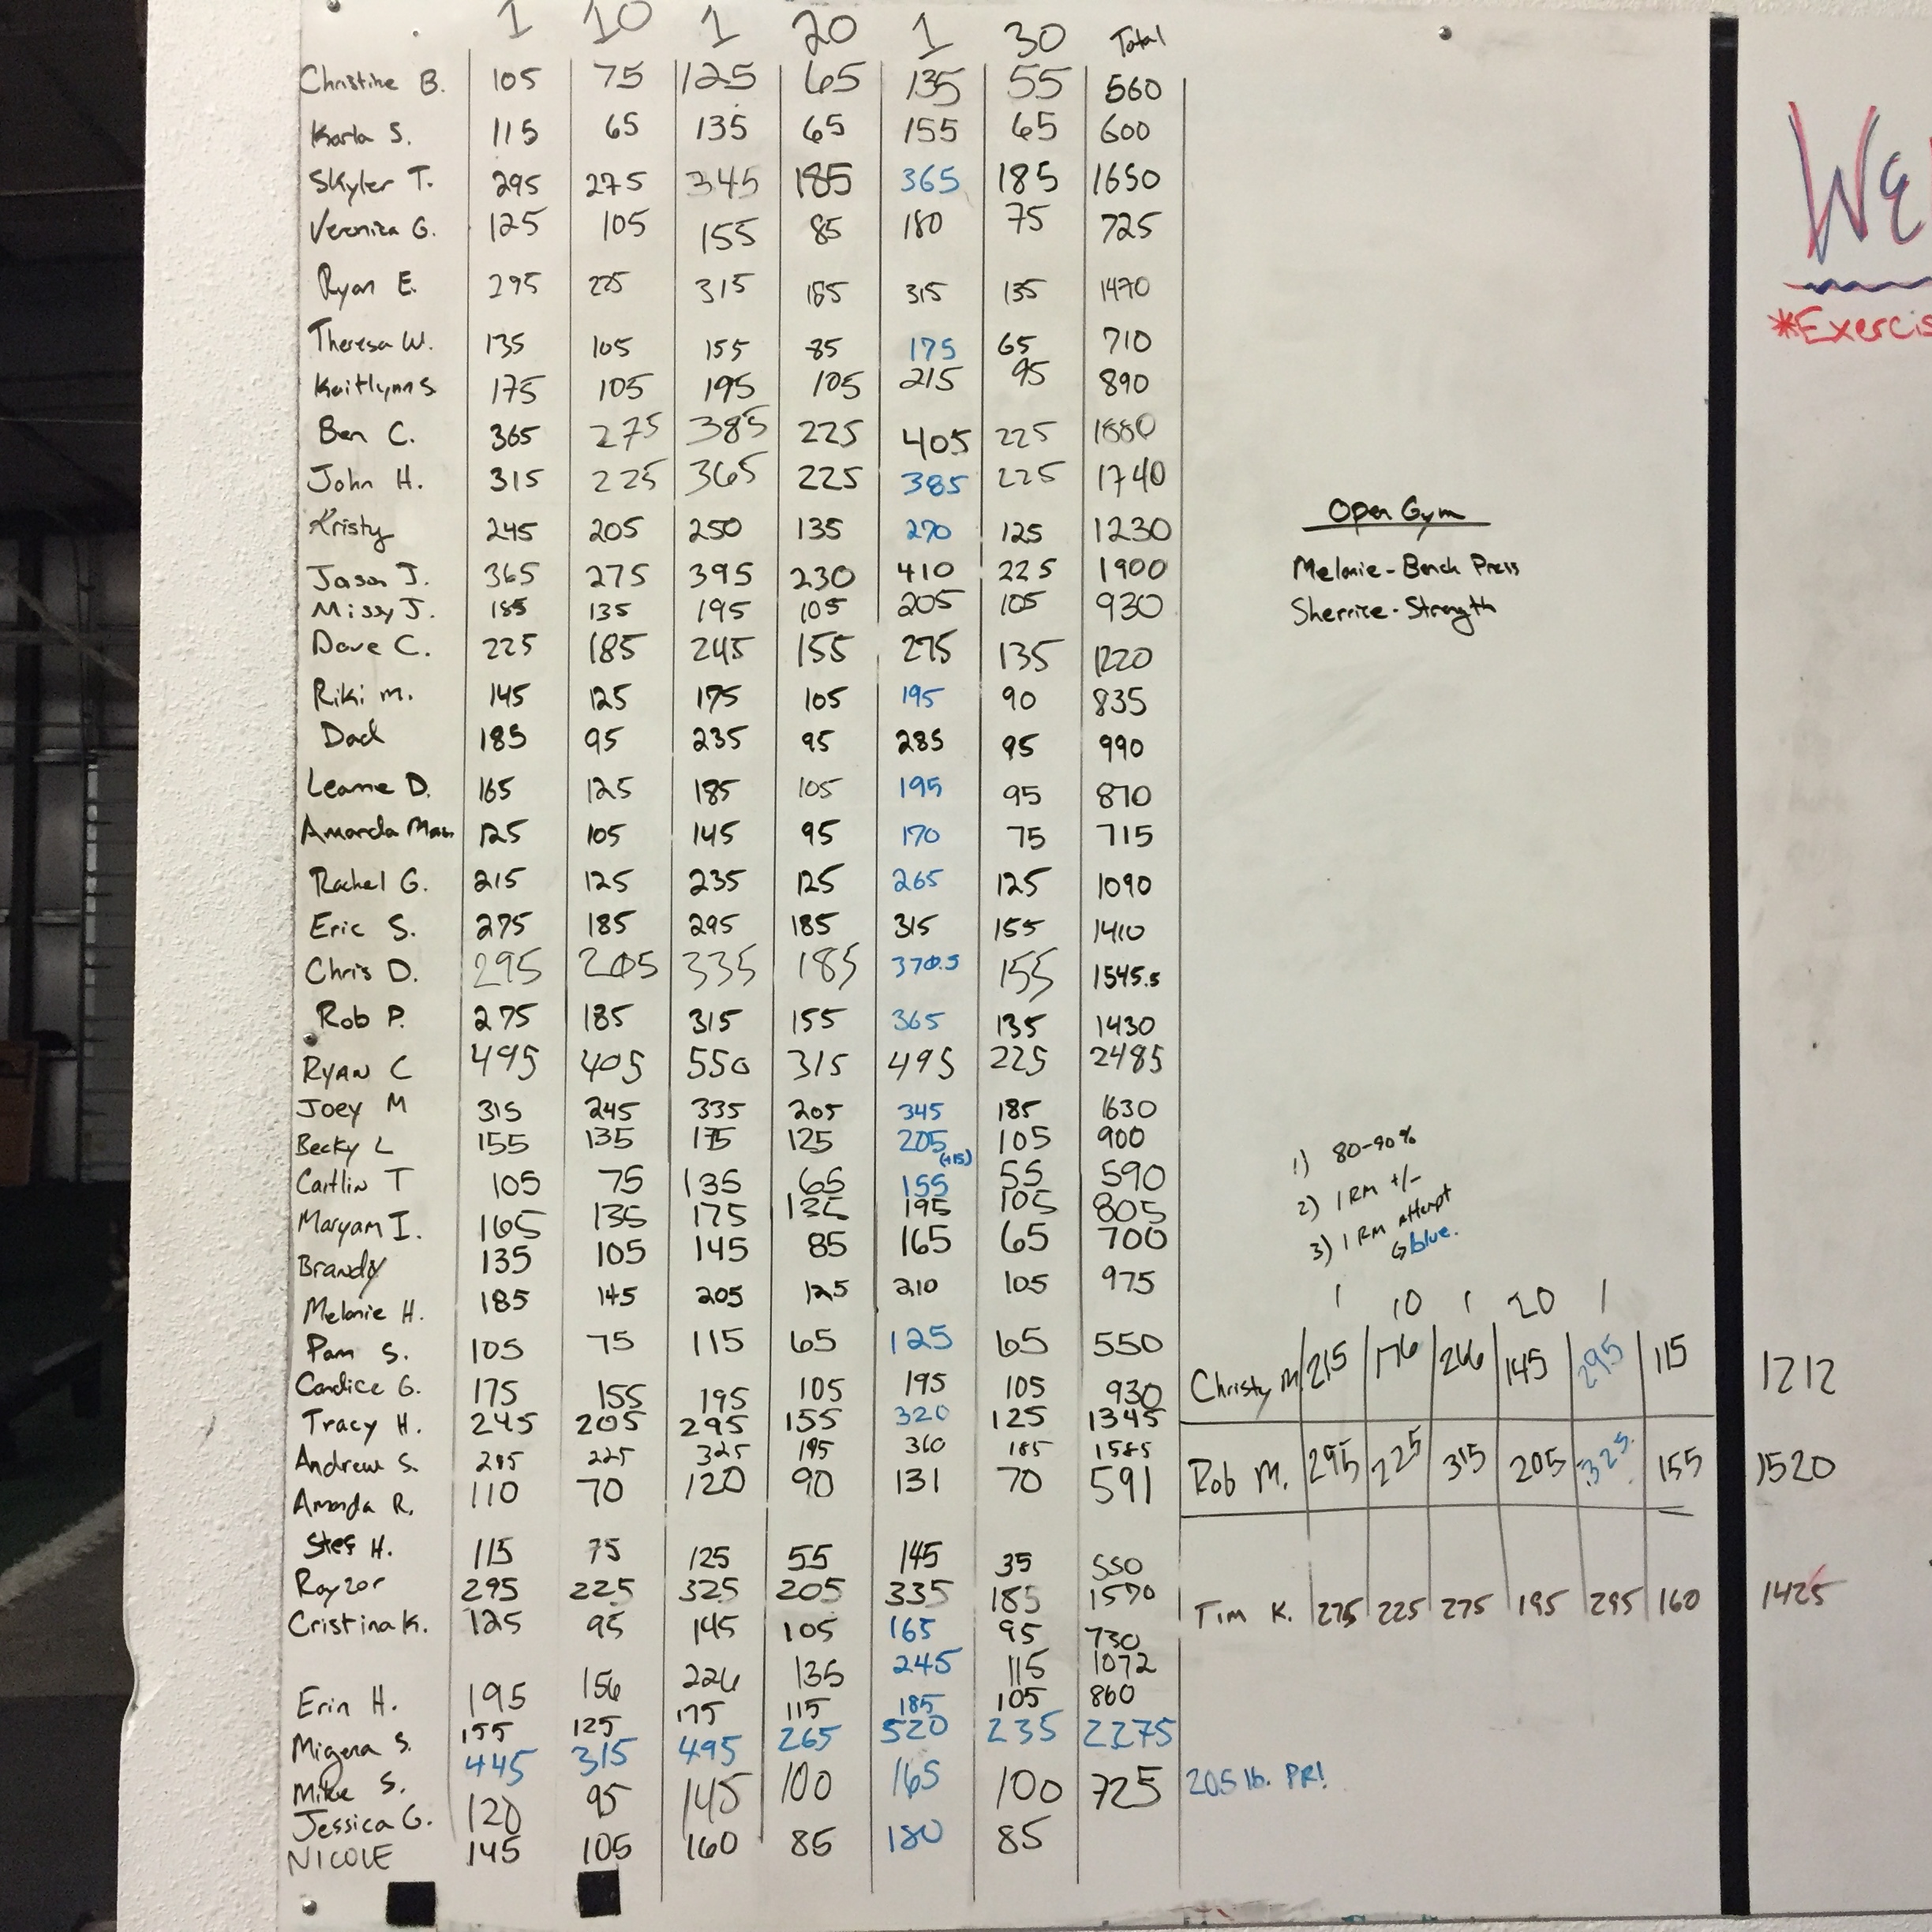 1 10 1 20 1 30 Total
Christine B. 105 75 125 65 135 55 560
Karla S. 115 65 135 65 155 65 600
Skyler T. 295 275 345 185 365 185 1650
Veronica G. 125 105 155 85 180 75 725
Ryan E. 295 225 315 185 315 135 1470
Theresa W. 135 105 155 85 175 65 710
Kaitlynn S 175 105 195 105 215 95 890
Ben C. 365 275 385 225 405 225 1880
John H. 315 225 365 225 385 225 1740
Kristy 245 205 250 135 270 125 1230
Jason J. 365 275 395 230 410 225 1900
Missy J. 185 135 195 105 205 105 930
Dave C. 225 185 245 155 275 135 1220
Riki m. 145 125 175 105 195 90 835
Dad 185 95 235 95 285 95 990
Leanne D. 165 125 185 105 195 95 870
Amanda 125 105 145 95 170 75 715
Rachel G. 215 125 235 125 265 125 1090
Eric S. 275 185 295 185 315 155 1410
Chris D. 295 205 335 185 370.5 155 1545.5
Rob P. 275 185 315 155 365 135 1430
RYAN C 495 405 550 315 495 225 2485
Joey M 315 245 335 205 345 185 1630
Becky L 155 135 175 125 205 (+15) 105 900
Caitlin T 105 75 135 65 155 55 590
Maryam I. 165 135 175 195 105 805
Brandy 135 105 145 85 165 65 700
Melanie H. 185 145 205 125 210 105 975
Pam S. 105 75 115 65 125 65 550
Candice G. 175 155 195 105 195 105 930
Tracy H. 245 205 295 155 320 125 1345
Andrew S. 295 225 325 195 360 185 1585
Amanda R. 110 70 120 90 131 70 591
Stef H. 115 75 125 55 145 35 550
Rayzor 295 225 325 205 335 185 1570
Cristina K. 125 95 145 105 165 95 730
Erin H. 195 156 226 135 245 115 1072
Migena S. 155 125 175 115 185 105 860
Mike S. 445 315 495 265 520 235 2275
Jessica G. 120 95 145 100 165 100 725 205 lb. PR!
NICOLE 145 105 160 85 180 85
Open Gym
Melanie - Bench Press
Sherrice - Strength
1) 80-90%
2) 1 RM +/-
3) 1 RM attempt
blue.
1 10 1 20 1
Christy M. 215 176 266 145 295 115 1212
Rob M. 295 225 315 205 325. 155 1520
Tim K. 275 225 275 195 295 160 1425
*Exercis